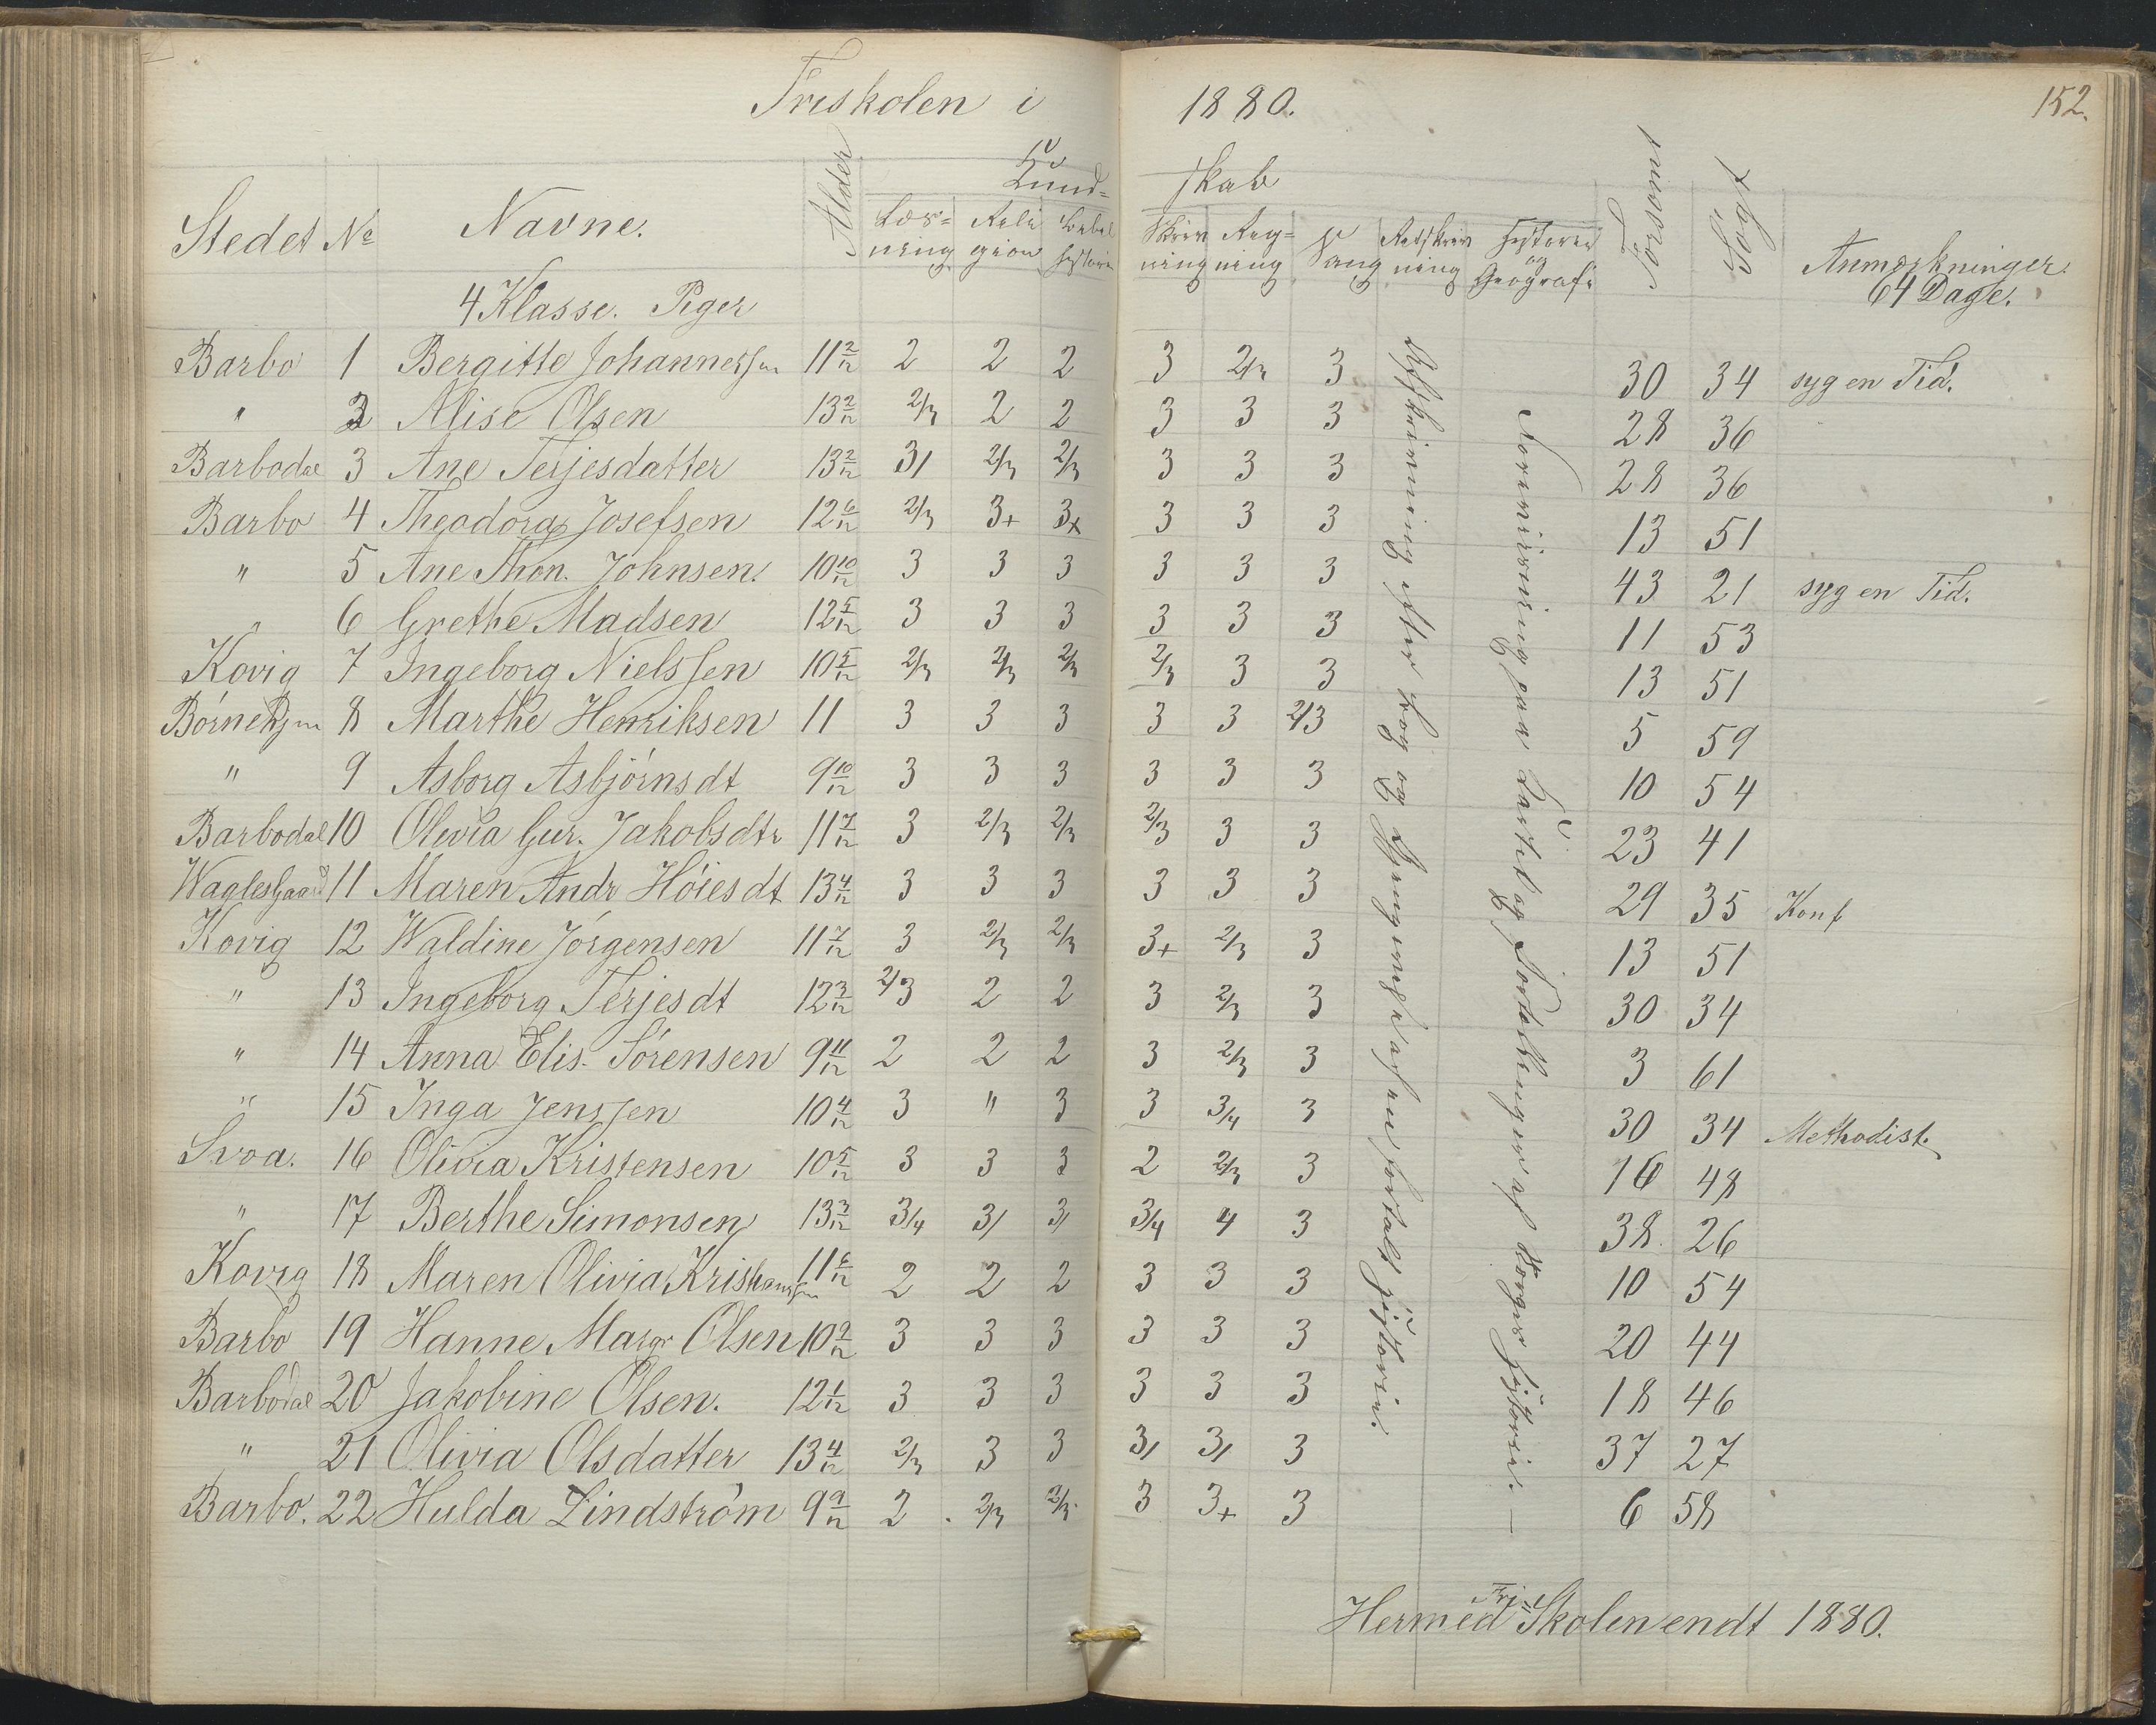 Friskolen i 1880. 152.
Stedet No Navne. Alder Kund= skab Forsømt Søgt Anmærkninger
Læs= ning Reli gion Bibel historie Skriv ning Reg= ning Sang Retskriv ning Historie og Geografi 64 Dage.
4 Klasse. Piger
Barbo 1 Bergitte Johannessen 11 2/12 2 2 2 3 2/3 3 30 34 syg en Tid.
" 2 Alise Olsen 13 2/12 2/3 2 2 3 3 3 28 36
Barbodal 3 Ane Terjesdatter 13 2/12 3/ 2/3 2/3 3 3 3 28 36
Barbo 4 Theodora Josefsen 12 6/12 2/3 3+ 3+ 3 3 3 13 51
" 5 Ane Thon. Johnsen. 10 10/12 3 3 3 3 3 3 43 21 syg en Tid.
" 6 Grethe Madsen 12 5/12 3 3 3 3 3 3 11 53
Kovig 7 Ingeborg Nielssen 10 5/12 2/3 2/3 2/3 2/3 3 3 13 51
Børnehjm 8 Marthe Henriksen 11 3 3 3 3 3 2/3 5 59
" 9 Asborg Asbjörnsdt 9 10/12 3 3 3 3 3 3 10 54
Barbodal 10 Olivia Gur. Jakobsdtr 11 7/12 3 2/3 2/3 2/3 3 3 23 41
Waglesgaard 11 Maren Andr Höiesdt 13 4/12 3 3 3 3 3 3 29 35 Konf
Kovig 12 Waldine Jörgensen 11 7/12 3 2/3 2/3 3+ 2/3 3 13 51
" 13 Ingeborg Terjesdt 12 3/12 2/3 2 2 3 2/3 3 30 34
" 14 Anna Elis. Sörensen 9 11/12 2 2 2 3 2/3 3 3 61
" 15 Inga Jenssen 10 4/12 3 " 3 3 3/4 3 30 34 Methodist.
Svoa. 16 Olivia Kristensen 10 5/12 3 3 3 2 2/3 3 16 48
" 17 Berthe Simonsen 13 3/12 3/4 3/ 3/ 3/4 4 3 38. 26
Kovig 18 Maren Olivia Kristiansen 11 6/12 2 2 2 3 3 3 10 54
Barbo 19 Hanne Margr Olsen 10 9/12 3 3 3 3 3 3 20 44
Barbodal 20 Jakobine Olsen. 12 1/12 3 3 3 3 3 3 18 46
" 21 Olivia Olsdatter 13 4/12 2/3 3 3 3/ 3/ 3 37 27
Barbo. 22 Hulda Lindström 9 9/12 2 2/3 2/3 3 3+ 3 6 58
Afskrivning efter Bog og Gjengivelse af en fortalt Historie.
Norvisning paa Kartet og Fortællinger af Norges Historie. —
Hermed Fri= Skolen endt 1880.